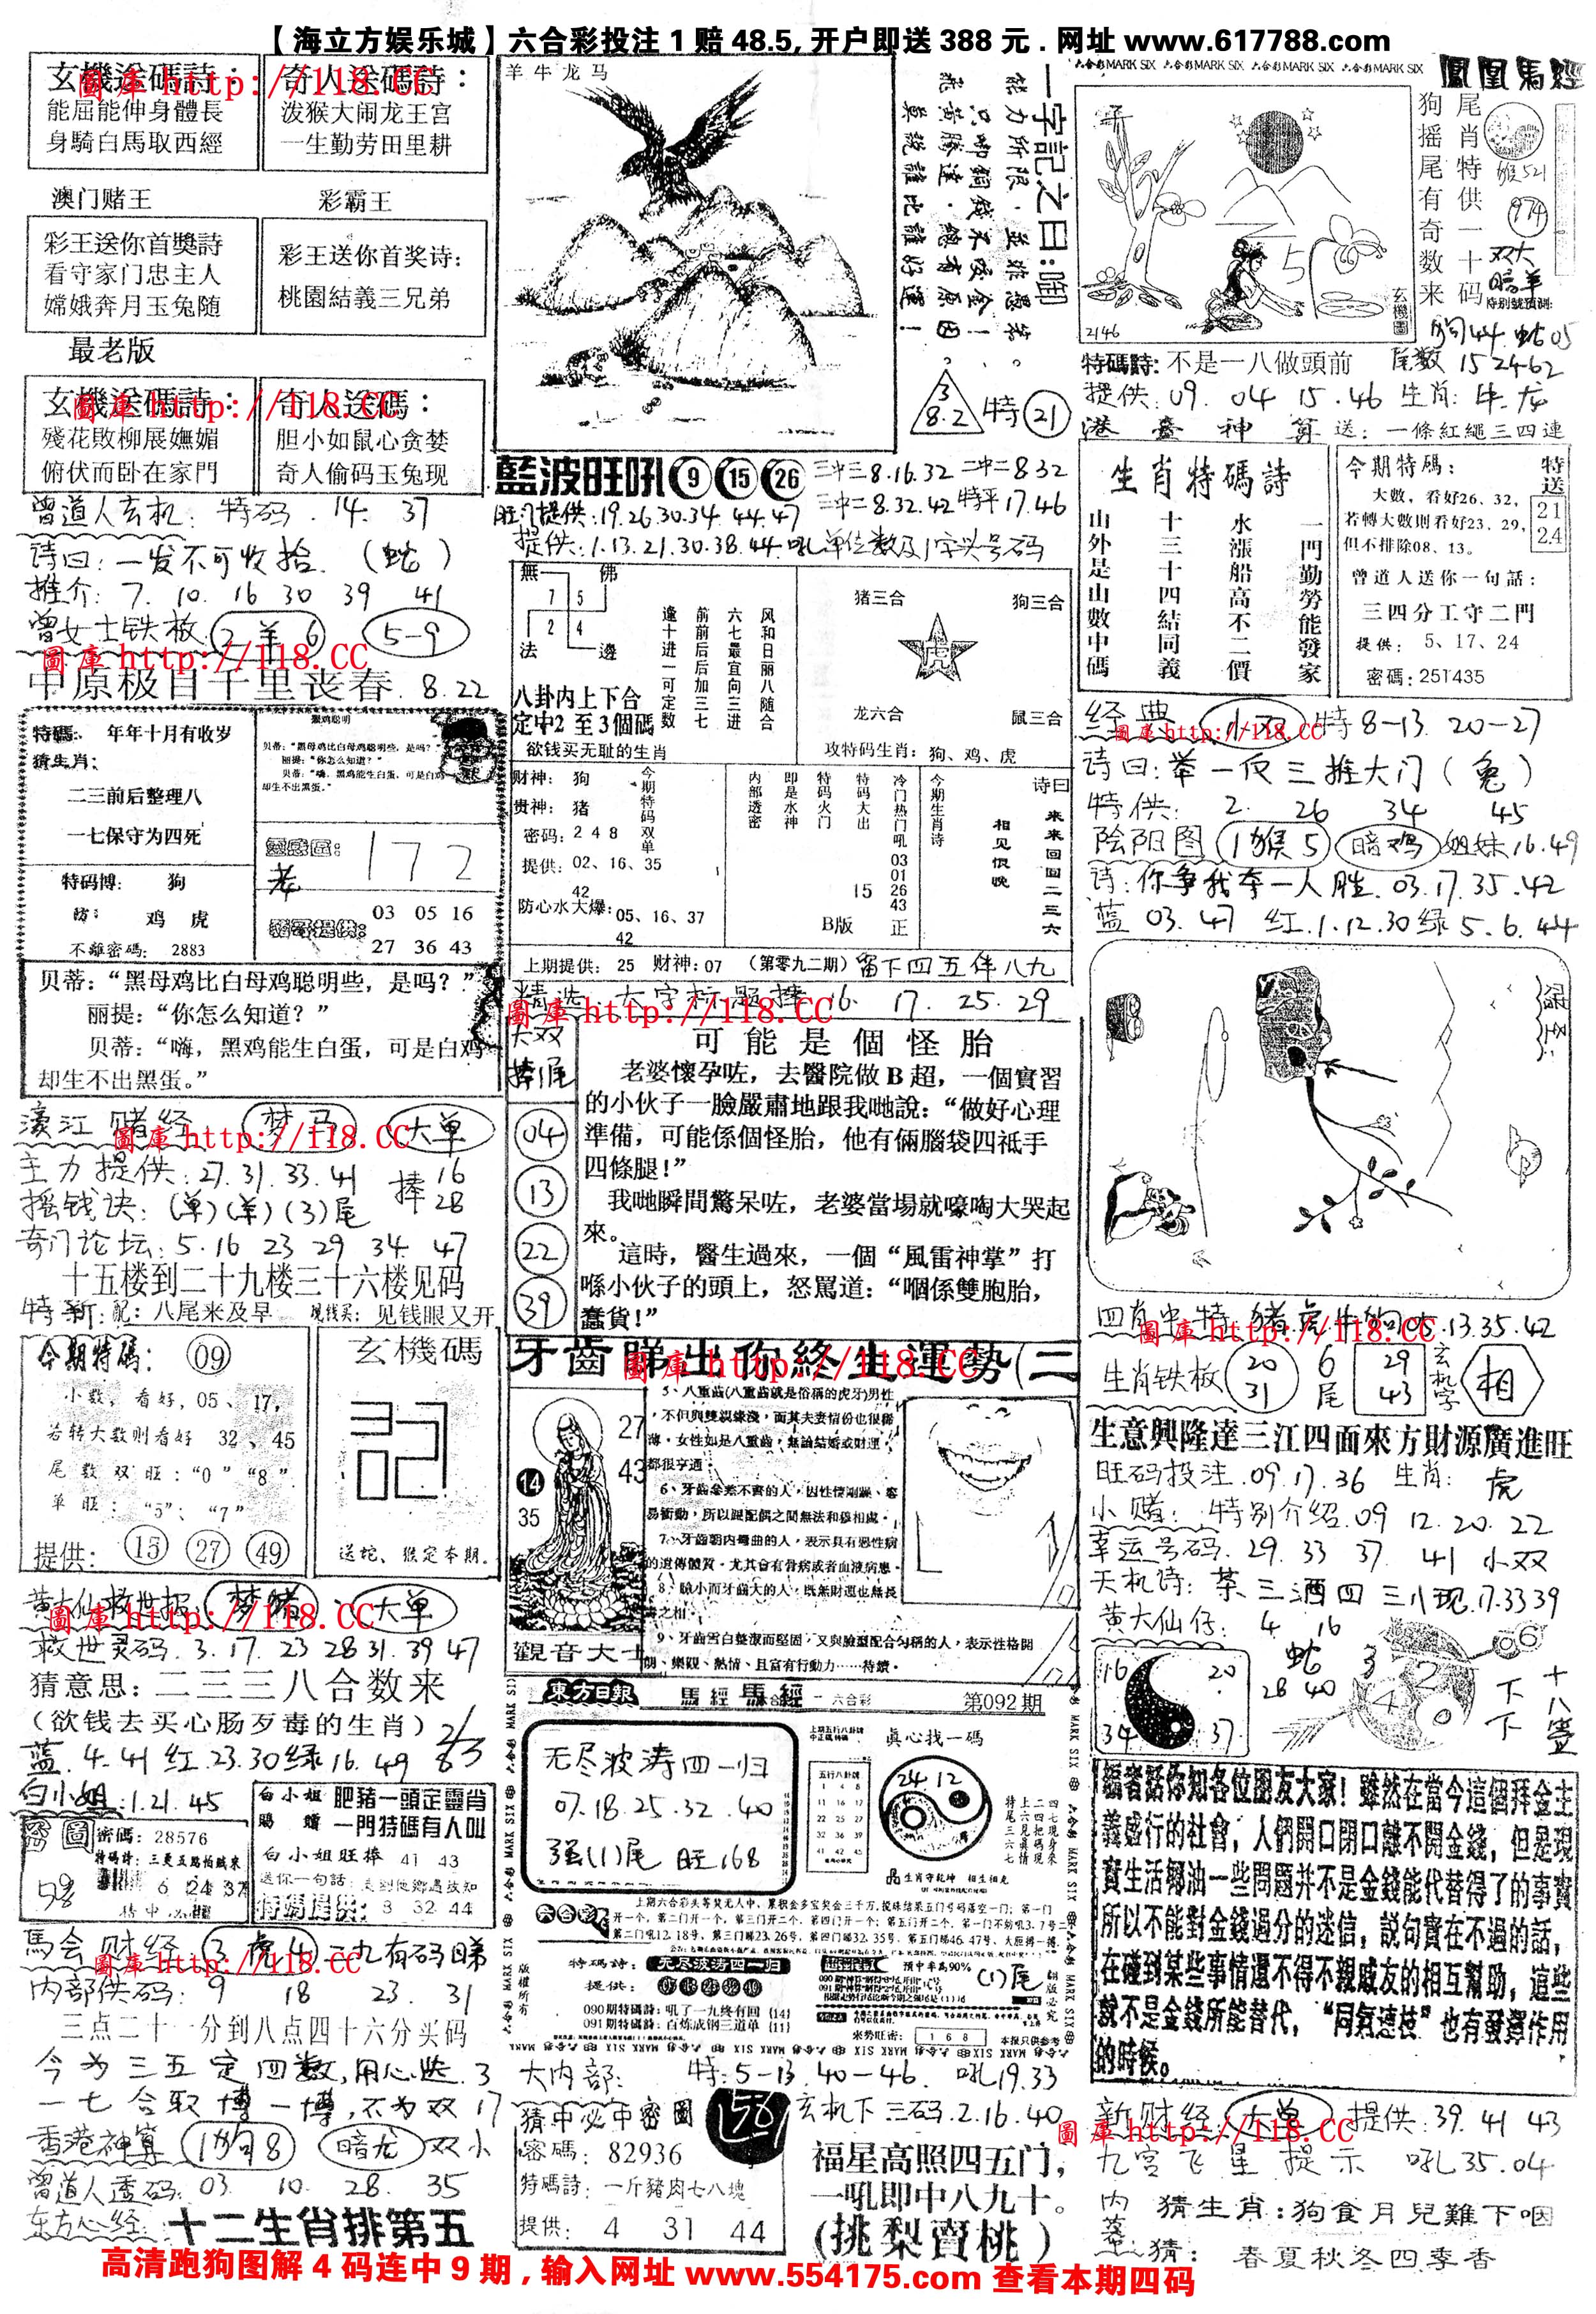 【海立方娱乐城】六合彩投注1赔48.5,开户即送388元.网址www.617788.com
玄機送碼詩：
能屈能伸身體長
身騎白馬取西經
奇人送碼詩：
泼猴大闹龙王宫
一生勤劳田里耕
圖庫 http://118.CC
澳门赌王
彩霸王
彩王送你首獎詩
看守家门忠主人
嫦娥奔月玉兔随
彩王送你首奖诗：
桃園結義三兄弟
最老版
玄機送碼詩：
殘花敗柳展嫵媚
俯伏而卧在家門
奇人送碼：
胆小如鼠心贪婪
奇人偷码玉兔现
圖庫 http://118.CC
曾道人玄机：特码.14.37
诗曰：一发不可收拾.（蛇）
推介：7.10.16 30 39 41
曾女士铁板：2羊6 5-9
圖庫 http://118.CC
中原极目千里丧春.8.22
特碼： 年年十月有收岁
猜生肖：
二三前后整理八
一七保守为四死
特码博： 狗
防： 鸡 虎
不離密碼：2883
172
03 05 16
27 36 43
贝蒂：“黑母鸡比白母鸡聪明些，是吗？”
丽提：“你怎么知道？”
贝蒂：“嗨，黑鸡能生白蛋，可是白鸡
却生不出黑蛋。”
濠江赌经 梦马 大单
圖庫 http://118.CC
主力提供：27.31.33.41 捧16 28
摇钱诀：(单)(羊)(3)尾
奇门论坛：5.16 23 29 34 47
十五楼到二十九楼三十六楼见码
特新：配：八尾来及早 现钱买：见钱眼又开
今期特碼： 09
小数，看好，05、17，
若转大数则看好 32、45
尾数双旺：“0”“8”
单旺：“5”：“7”
提供： 15 27 49
玄機碼
送蛇、猴定本期.
黄大仙救世报 梦猪 大单
圖庫 http://118.CC
救世灵码.3.17.23 28 31.39 47
猜意思：二三三八合数来
（欲钱去买心肠歹毒的生肖）
蓝.4.41 红.23.30 绿16.49
白小姐：1.21.45
密圖
密碼：28576
特碼詩：三更五點怕賊來
6 24 37
白小姐 肥豬一頭定靈肖
賜贈 一門特碼有人叫
白小姐旺捧 41 43
特碼提供：3 32 44
馬会财经 3虎4 一九有码睇
圖庫 http://118.CC
内部供码：9 18 23.31
三点二十一分到八点四十六分买码
今为三五定四数,用心选.3
一七合取博一博,不为双17
香港神算 1狗8 暗龙 双小
曾道人透码：03 10.28.35
东方心经：十二生肖排第五
羊牛龙马
一字記之曰：啣
能力所限，並非愚笨。
只啣銅錢不咬金！
飛黃騰達，總有原因，
莫說誰比誰好運！
3
8.2
特 21
藍波旺吼 9 15 26
三中三8.16.32 二中二8 32
三中二8.32.42 特平17.46
旺门提供：19.26.30.34.44.47
提供：1.13.21.30.38.44.吼单位数及1字头号码
無 佛
7 5
2 4
法 邊
八卦内上下合
定中2至3個碼
逢十进一可定数
前前后后加三七
六七最宜向三进
风和日丽八随合
猪三合 狗三合
虎
龙六合 鼠三合
欲钱买无耻的生肖
攻特码生肖：狗、鸡、虎
财神： 狗
贵神： 猪
密码：2 4 8
提供：02、16、35
42
防心水大爆：05、16、37
42
今期特码双单
内部透密
即是水神
特码火门
特码大出
15
B版
冷门热门吼
03
01
26
43
正
今期生肖诗
诗曰
来来回回二三六
相见恨晚
上期提供：25 财神：07 （第零九二期）留下四五伴八九
精选 大字标题捧16. 17.25.29
圖庫 http://118.CC
大双
捧1尾
04
13
22
39
可能是個怪胎
老婆懷孕咗，去醫院做B超，一個實習
的小伙子一臉嚴肅地跟我哋說：“做好心理
準備，可能係個怪胎，他有倆腦袋四祗手
四條腿！”
我哋瞬間驚呆咗，老婆當場就嚎啕大哭起
來。
這時，醫生過來，一個“風雷神掌”打
喺小伙子的頭上，怒罵道：“嗰係雙胞胎，
蠢貨！”
牙齒睇出你終生運勢(二
圖庫 http://118.CC
27
43
14
35
觀音大士
5、八重齒(八重齒就是俗稱的虎牙)男性
，不但與雙親緣淺，而其夫妻情份也很稀
薄。女性如是八重齒，無論結婚或財運，
都很亨通。
6、牙齒參差不齊的人，因性情剛躁、容
易衝動，所以跟配偶之間無法和穆相處。
7、牙齒朝內彎曲的人，表示具有惡性病
的遺傳體質。尤其會有骨病或者血液病患。
8、臉小而牙齒大的人，既無財運也無長
壽之相。
9、牙齒雪白整潔而堅固，又與臉型配合勻稱的人，表示性格開
朗、樂觀、熱情、且富有行動力……待續。
東方日報 馬經 馬經 六合彩 第092期
无尽波涛四一归
07.18.25.32.40
强(1)尾 旺168
眞心找一碼
24 12
生肖守乾坤 相生相克
六合彩
特碼詩：无尽波涛四一归
提供：07 18 25 32 40
090期特碼詩：吼了一九终有回 [14]
091期特碼詩：百炼成钢三道单 [11]
预中率高90%
(1)尾
來勢旺密：1 6 8 本报只供参考
版權所有
翻版必究
大内部： 特：5-13.40-46.吼19.33
猜中必中密圖
密碼：82936
特碼詩：一斤豬肉七八塊
提供：4 31 44
玄机下三码.2.16.40
福星高照四五门，
一吼即中八九十。
(挑梨賣桃)
六合彩MARK SIX 六合彩MARK SIX 六合彩MARK SIX 六合彩MARK SIX
鳳凰馬經
2146
玄機圖
狗摇尾有奇数来
尾肖特供一十码
猴521
974
双大
暗羊
特别號預測：
狗44.蛇05
特碼詩：不是一八做頭前 尾数 15 24 62
提供：09.04 15.46 生肖：牛.龙
港臺神算 送：一條紅繩三四連
生肖特碼詩
一門勤勞能發家
水漲船高不二價
十三十四結同義
山外是山數中碼
今期特碼：
大數，看好26、32，
若轉大數則看好23、29，
但不排除08、13。
特送
21
24
曾道人送你一句話：
三四分工守二門
提供：5、17、24
密碼：251435
经典 小双 特8-13 20-27
圖庫 http://118.CC
诗曰：举一反三推大门（兔）
特供： 2. 26 34 45
陰阳图 1猴5 暗鸡 姐妹16.49
诗：你争我夺一人胜.03.17.35.42
蓝 03.47 红.1.12.30 绿5.6.44
赌圣：
四肖中特 猪虎牛狗05.13.35.42
圖庫 http://118.CC
生肖铁板 20 31 6尾 29 43 玄机字 相
生意興隆達三江四面來方財源廣進旺
旺码投注.09.17.36 生肖： 虎
小赌：特别介绍.09 12.20.22
幸运号码.29.33 37. 41 小双
天机诗：茶三酒四三八现.17.33 39
黄大仙仔：4 16
16 20
34 37
蛇
28 40
十八壹
下下
編者話你知各位圖友大家！雖然在當今這個拜金主
義盛行的社會，人們開口閉口離不開金錢，但是現
實生活鄉油一些問題并不是金錢能代替得了的事實
所以不能對金錢過分的迷信，說句實在不過的話，
在碰到某些事情還不得不親戚友的相互幫助，這些
就不是金錢所能替代，“同氣連枝”也有發揮作用
的時候。
新财经 大单 提供：39.41 43
圖庫 http://118.CC
九宫飞星提示 吼35.04
内幕 猜生肖：狗食月兒難下咽
猜：春夏秋冬四季香
高清跑狗图解4码连中9期，输入网址www.554175.com查看本期四码